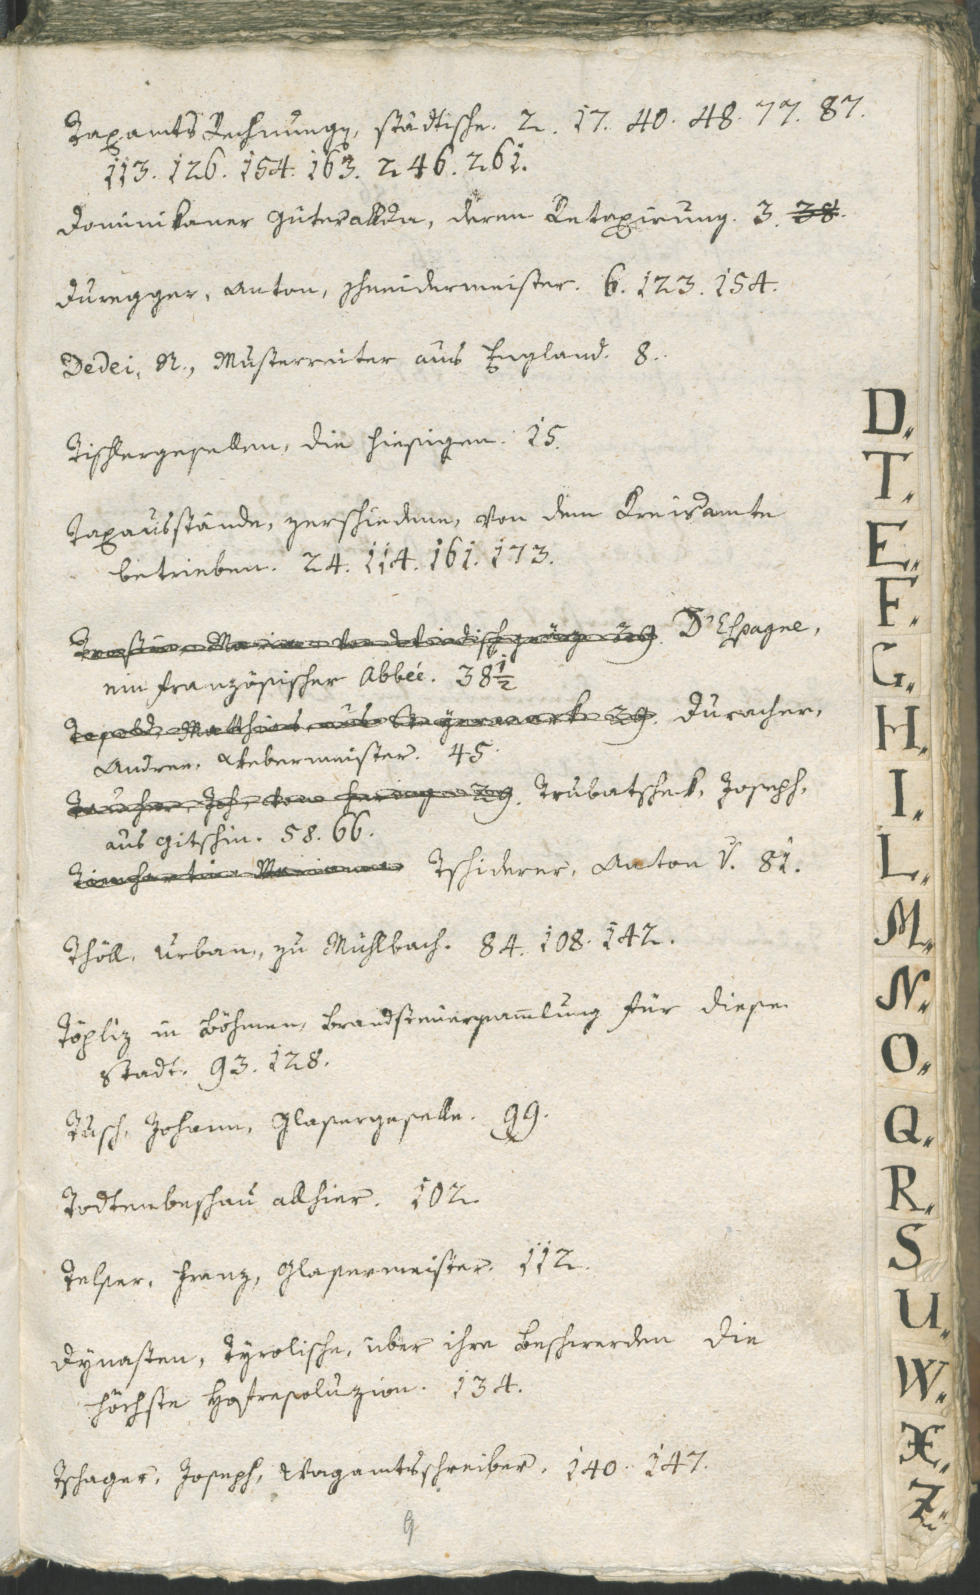 Taxamts Rechnungen, städtische. 2. 17. 40. 48. 77. 87.
113. 126. 154. 163. 246. 261.
Dominikaner Güterallda, deren Retaxirung. 3. 38.
Duregger, Anton, Schneidermeister. 6. 123. 154.
Dedei, N., Musterreiter aus England. 8.
Tischlergesellen, die hiesigen. 15.
Taxausstände, verschiedene, von dem Kreisamte
betrieben. 24. 114. 161. 173.
Maria von Windischgräz 29. D'Espagne,
ein französischer Abbeé. 38 1/2
Matthias, aus Steyermark 29. Duracher,
Andree, Webermeister. 45.
Joh, von 29. Trubatschek, Joseph,
aus Gitschin. 58. 66.
Marianna Tschiderer, Anton V. 81.
Thöll, Urban, zu Mühlbach. 84. 108. 142.
Töpliz in Böhmen, Brandsteuersammlung für diese
Stadt. 93. 128.
Tusch, Johann, Glasergeselle. 99.
Todtenbeschau allhier. 102.
Telser, Franz, Glasermeister. 112.
Dynasten, Tyrolische, über ihre Beschwerden die
höchste Hofresoluzion. 134.
Tschager, Joseph, Wagamtsschreiber. 140. 147.
9
D.
T.
E.
F.
G.
H.
I.
L.
M.
N.
O.
Q.
R.
S
U.
W.
X.
Z.